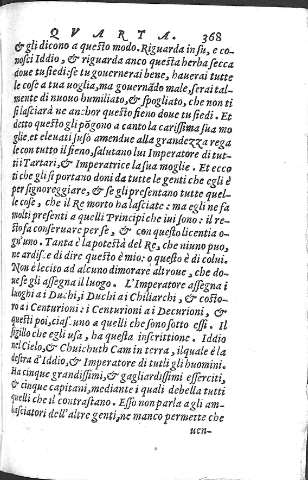 QVARTA. 368
& gli dicono a questo modo. Riguarda in su, e co-
nosci Iddio, & riguarda anco questa herba secca
doue tu siedi: se tu gouernerai bene, hauerai tutte
le cose a tua uoglia, ma gouernãdo male, serai tal-
mente di nuouo humiliato, & spogliato, che non ti
si lasciarà ne anchor questo fieno doue tu siedi. Et
detto questo gli põgono a canto la carissima sua mo
glie, et eleuati suso amendue alla grandezza rega
le con tutto il fieno, salutano lui Imperatore di tut-
ti i Tartari, & Imperatrice la sua moglie. Et ecco
ti che gli si portano doni da tutte le genti che egli è
per signoreggiare, & se gli presentano tutte quel-
le cose, che il Re morto ha lasciate: ma egli ne fa
molti presenti a quelli Principi che iui sono: il re-
sto fa conseruare per se, & con questo licentia o-
gn'uno. Tanta è la potestà del Re, che niuno puo,
ne ardisce di dire questo è mio: o questo è di colui.
Non è lecito ad alcuno dimorare altroue, che do-
ue se gli assegna il luogo. L'Imperatore assegna i
luoghi ai Duchi, i Duchi ai Chiliarchi, & costo-
ro ai Centurioni: i Centurioni ai Decurioni, &
questi poi, ciasc'uno a quelli che sono sotto essi. Il
sigillo che egli usa, ha questa inscrittione. Iddio
nel Cielo, & Chuichuth Cam in terra, il quale è la
destra d'Iddio, & Imperatore di tutti gli huomini.
Ha cinque grandissimi, & gagliardissimi esserciti,
& cinque capitani, mediante i quali debella tutti
quelli che il contrastano. Esso non parla a gli am-
basciatori dell'altre genti, ne manco permette che
uen-